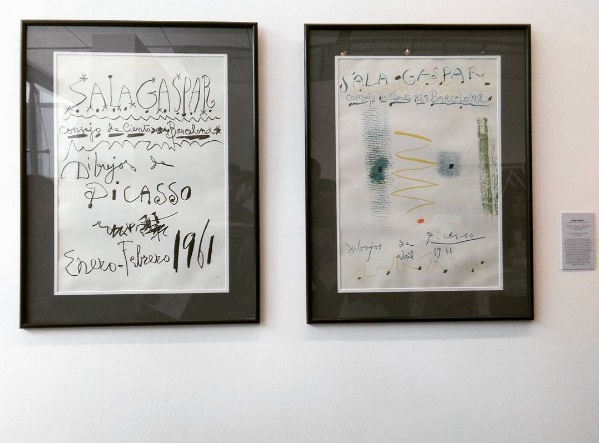 SALA GASPAR
Consejo de Ciento 323 Barcelona
Dibujos de
PICASSO
Enero-Febrero 1961
SALA GASPAR
Consejo de Ciento 323 Barcelona
Picasso
dibujos de abril 1961